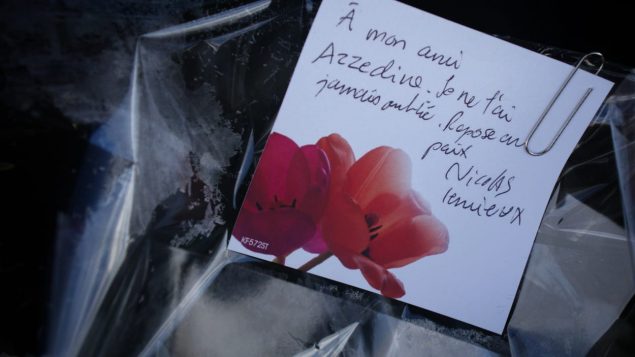 À mon ami
Azzedine. Je ne t'ai
jamais oublié. Repose en
paix
Nicolas
Lemieux
KF572ST